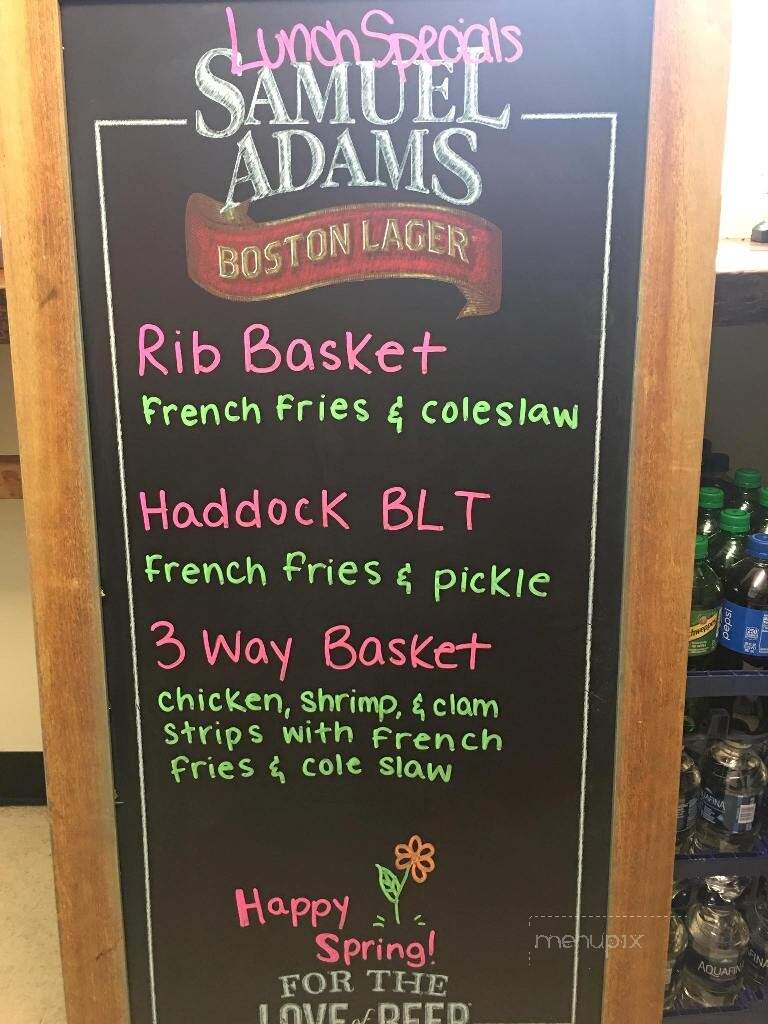 Lunch Specials
SAMUEL
ADAMS
BOSTON LAGER
Rib Basket
French Fries & coleslaw
Haddock BLT
French Fries & pickle
3 Way Basket
chicken, shrimp, & clam
strips with French
Fries & cole slaw
Happy
Spring!
FOR THE
LOVE of BEER
menupix
pepsi
AQUAFINA